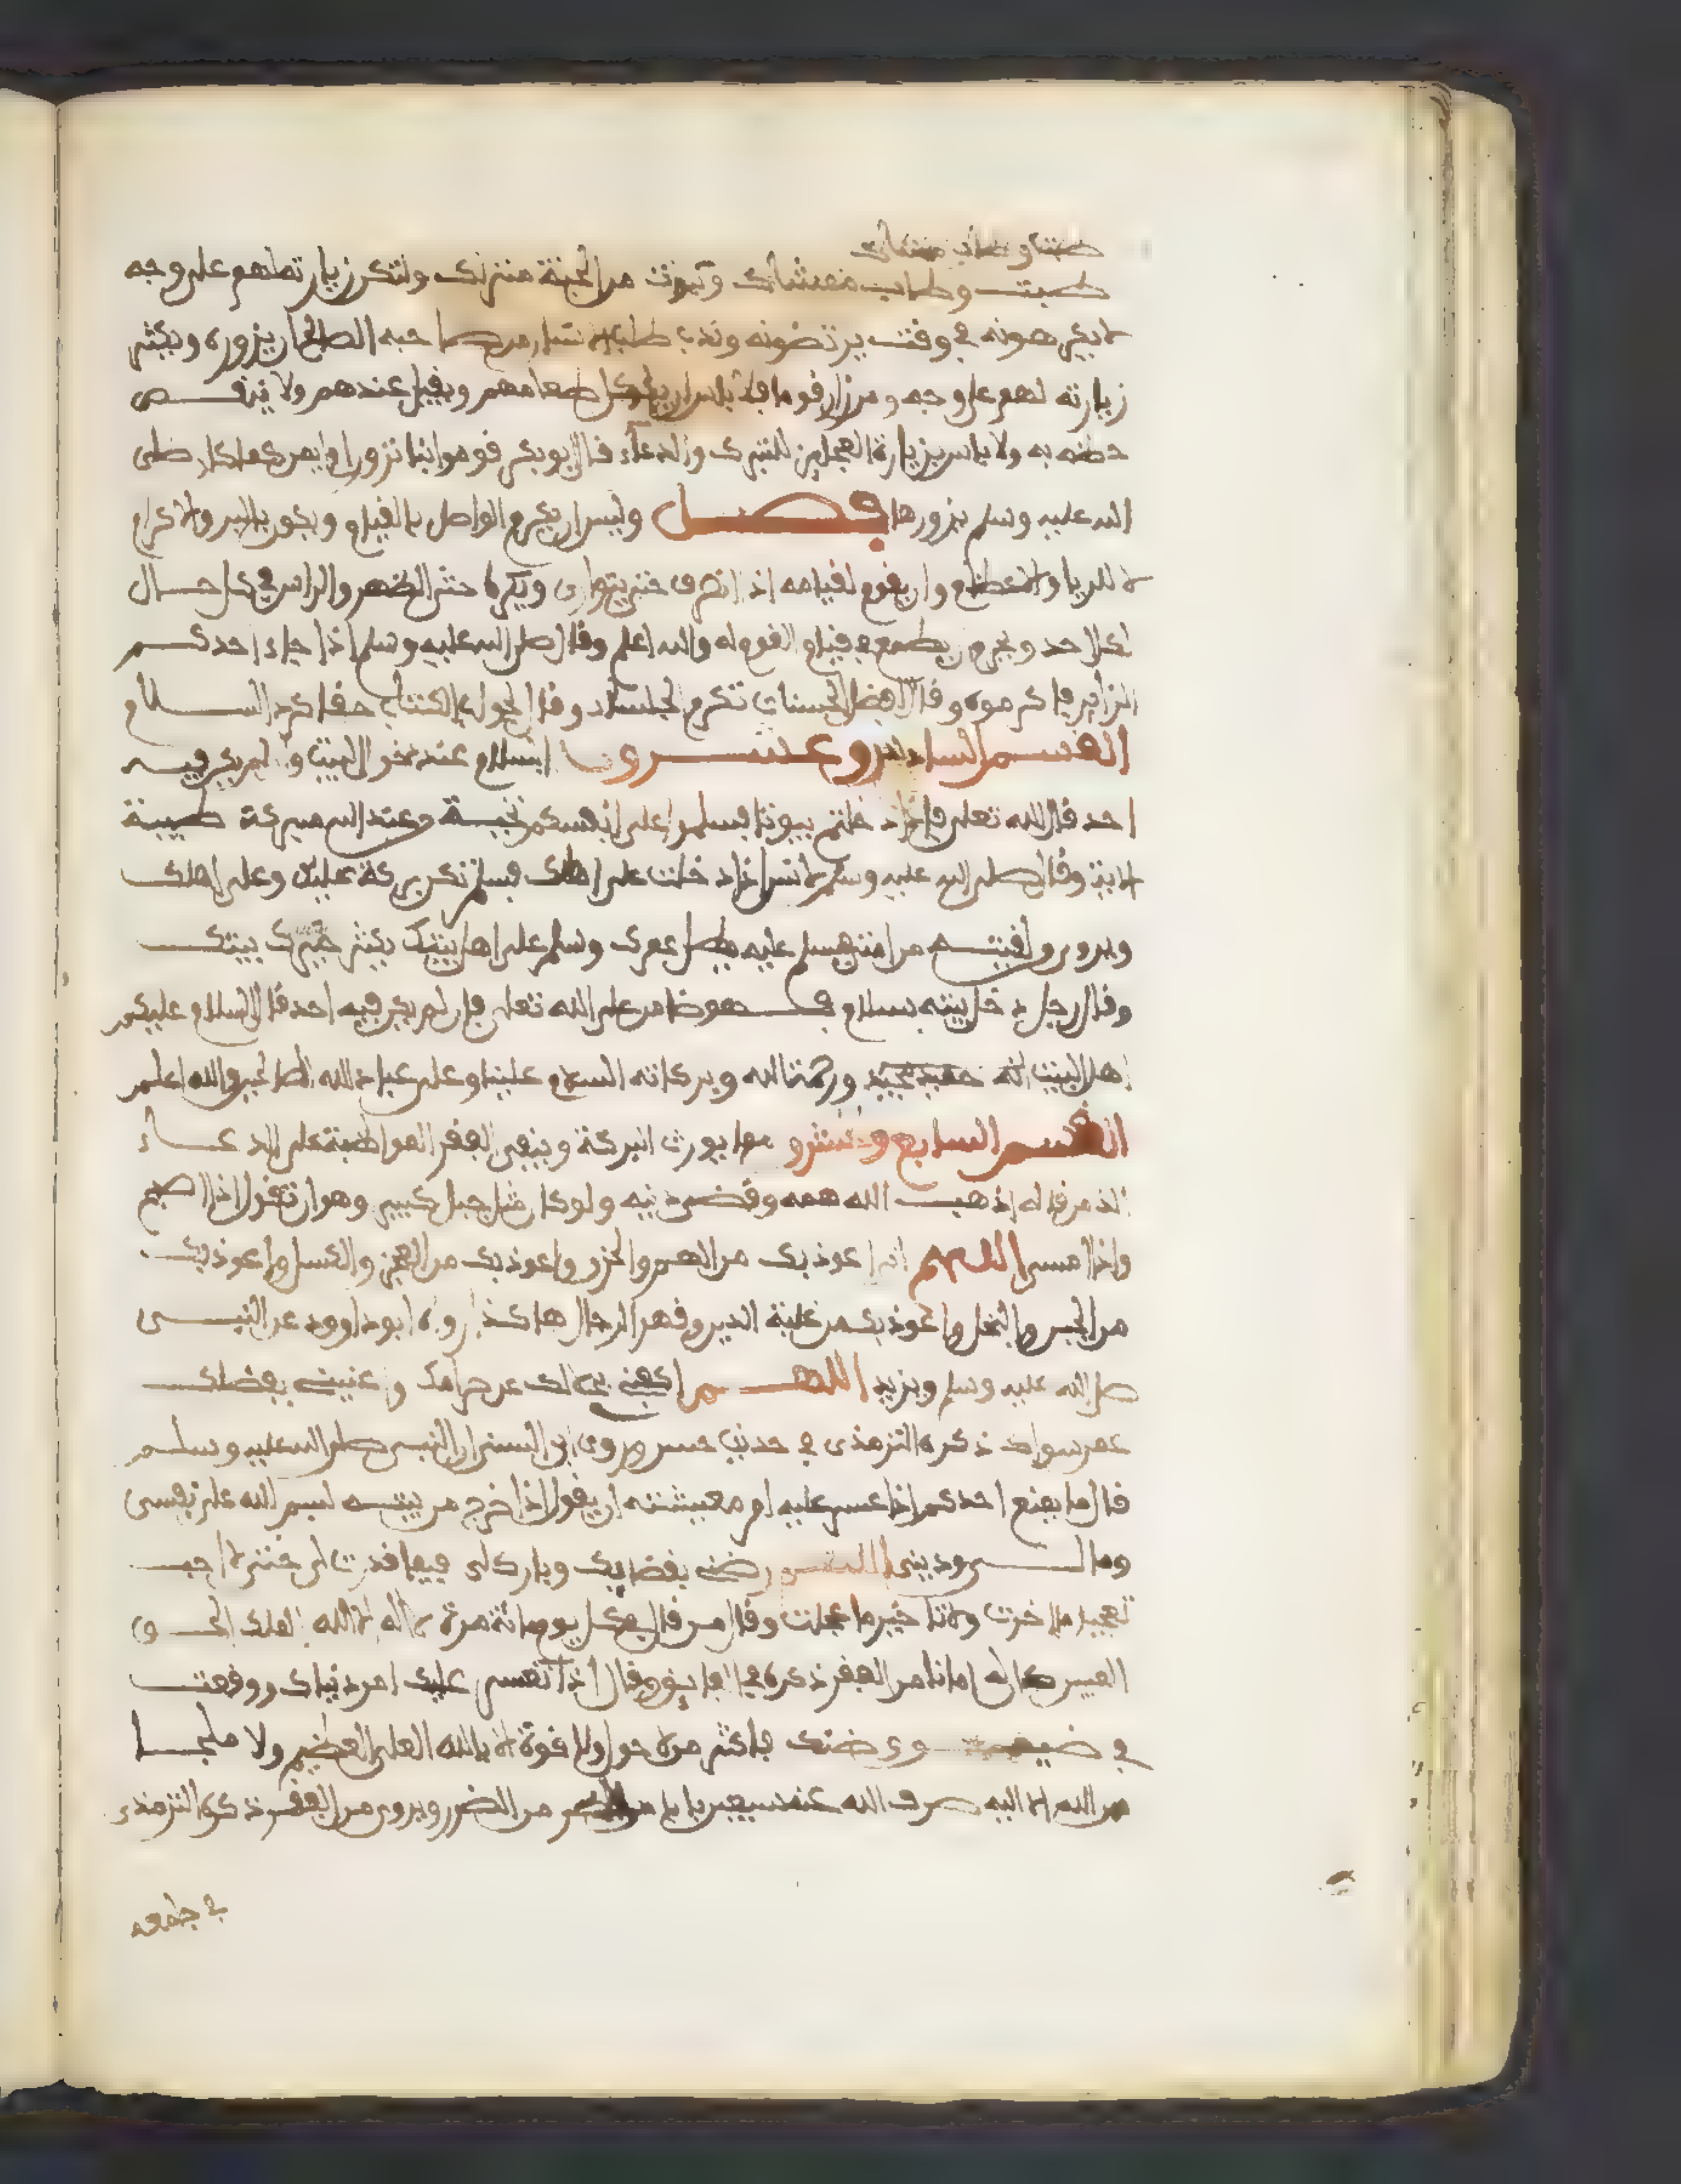 طبت وطاب ممشاك
طبت وطاب ممشاك وتبوت من الجنة منزلك ولتكن زيارته لهم على وجه
لا يكرهونه في وقت يرتضونه وندب طلب الانسان من صاحبه الصالح ان يزوره ويكثر
زيارته لهم على وجه ومن زار قوما فلا باس ان ياكل طعامهم ويقيل عندهم ولا
به ولا باس بزيارة للتبرك والدعاء قال ابو بكر قوموا بنا نزور ام ايمن كما كان صلى
الله عليه وسلم يزورها فصل وليس ان يكرم الواصل بالقيام ويكون بالبر والاكرام
لا للريا والاعظام وان يقوم لقيامه اذا انصرف حتى يتوارى ويكره حنى الظهر والراس في كل حال
لكل احد ويحرم يطمع في قيام القوم له والله اعلم وقال صلى الله عليه وسلم اذا جاء احدكم
الزاير فاكرموه وقال افضل الحسنات تكرم الجلساء وقال الجواب الكتاب حقا كرد السلام
القسم السادس وعشرون السلام عند دخول البيت وان لم يكن فيه
احد قال الله تعلى فاذا دخلتم بيوتا فسلموا على انفسكم تحية من عند الله مبركة طيبة
الاية وقال صلى الله عليه وسلم لانس اذا دخلت على اهلك فسلم تكن بركة عليك وعلى اهلك
ويروى ولقيته من امتي فسلم عليه يطل عمرك وسلم على اهل بيتك يكثر خيرك بيتك
وقال رجل دخل بيته بسلام فهو ضامن على الله تعلى فان لم يكن فيه احد قال السلام عليكم
اهل البيت انه حميد مجيد ورحمة الله وبركاته السلام علينا وعلى عباد الله الصالحين والله اعلم
القسم السابع وعشرو مما يورث البركة وينفي الفقر المواظبة على الدعاء
الذ من قاله اذهب الله همه وقضى دينه ولو كان مثل جبل كبير وهو ان تقول اذا اصبح
واذا امسى اللهم اني اعوذ بك من الهم والحزن واعوذ بك من العجز والكسل واعوذ بك
من الجبن والبخل واعوذ بك من غلبة الدين وقهر الرجال هاكذا رواه ابو داوود عن النبي
صلى الله عليه وسلم ويزيد اللهم اكفني بحلالك عن حرامك واغنيني بفضلك
عمن سواك ذكره الترمذي في حديث حسن وروى ابن السني ان النبي صلى الله عليه وسلم
قال ما يمنع احدكم اذا عسر عليه امر معيشته ان يقول اذا خرج من بيته لبسم الله على نفسي
ومالي وديني اللهم رضني بقضايك وبارك لي فيما قدرت لي حتى لا احب
تعجيل ما اخرت ولا تاخير ما عجلت وقال من قال في كل يوم مائة مرة لا اله الا الله الملك الحق
المبين كان له امانا من الفقر ذكره في وقال اذا تعسر عليك امر دنياك ووقعت
في ضيق وضنك فاكثر من لا حول ولا قوة الا بالله العلي العظيم ولا ملجا
من الله الا اليه صرف الله عنه سبعين بابا من الضرر ويروى من الفقر ذكره الترمذي
في جامعه